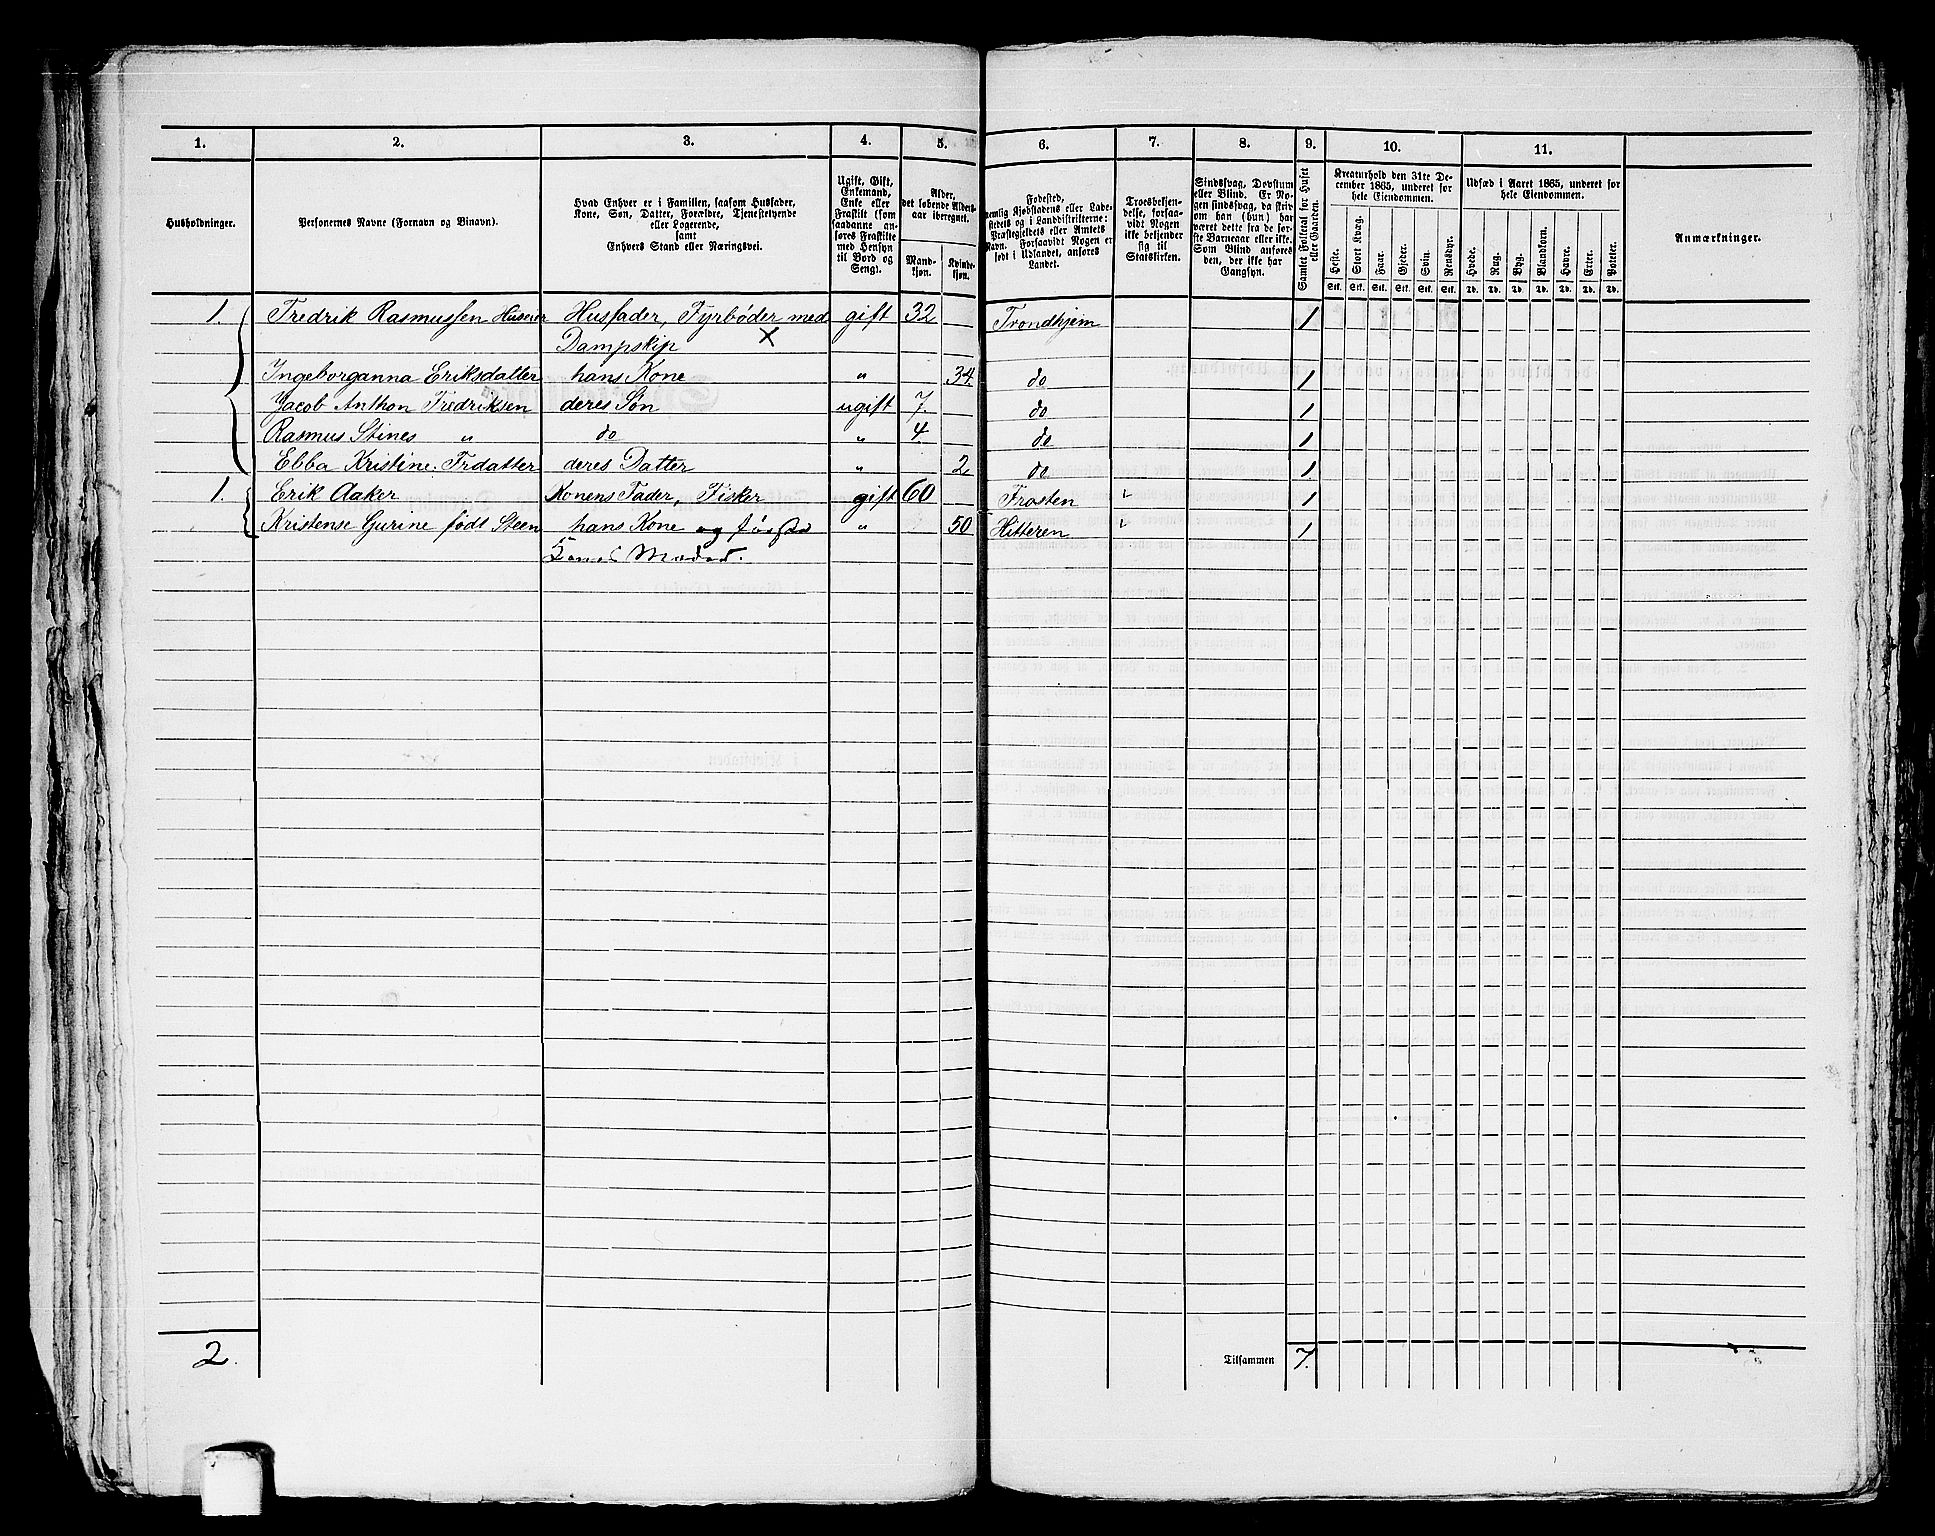 1. 2. 3. 4. 5. 6. 7. 8. 9. 10. 11.
Husholdninger.
Personernes Navne (Fornavn og Binavn).
Hvad Enhver er i Familien, saasom Husfader,
Kone, Søn, Datter, Forældre, Tjenestetyende
eller Logerende,
samt
Enhvers Stand eller Næringsvei.
Ugift, Gift,
Enkemand,
Enke eller
Fraskilt (som
saadanne an-
føres Fraskilte
med Hensyn
til Bord og
Seng).
Alder,
det løbende Alders-
aar iberegnet.
Mand-
kjøn.
Kvinde-
kjøn.
Fødested,
nemlig Kjøbstadens eller Lade-
stedets og i Landdistrikterne:
Præstegjeldets eller Amtets
Navn. Forsaavidt Nogen er
født i Udlandet, anføres
Landet.
Troesbekjen-
delse, forsaa-
vidt Nogen
ikke bekjender
sig til
Statskirken.
Sindssvag, Døvstum
eller Blind. Er No-
gen sindssvag, da skriv
om han (hun) har
været dette fra de før-
ste Barneaar eller ikke.
Som Blind anføres
den, der ikke har
Gangsyn.
Samlet Folketal for Huset
eller Gaarden.
Kreaturhold den 31te De-
cember 1865, underet for
hele Eiendommen.
Heste. Stort Kvæg. Faar. Gjeder. Svin. Rensdyr.
Stk. Stk. Stk. Stk. Stk. Stk.
Udsæd i Aaret 1865, underet for
hele Eiendommen.
Hvede. Rug. Byg. Blandkorn. Havre. Erter. Poteter.
Td. Td. Td. Td. Td. Td. Td.
Anmærkninger.
1. Fredrik Rasmussen Huserer Husfader, Fyrbøder med gift 32 Trondhjem 1
Dampskip X
Ingeborganna Eriksdatter hans Kone " 34 do 1
Jacob Anthon Fredriksen deres Søn ugift 7. do 1
Rasmus Stines " do " 4 do 1
Ebba Kristine Frdatter deres Datter " 2 do 1
1. Erik Aaker Konens Fader, Fisker gift 60 Frosten 1
Kristense Gurine født Steen hans Kone og første " 50 Hitteren 1
Kones Moder.
2. Tilsammen 7.